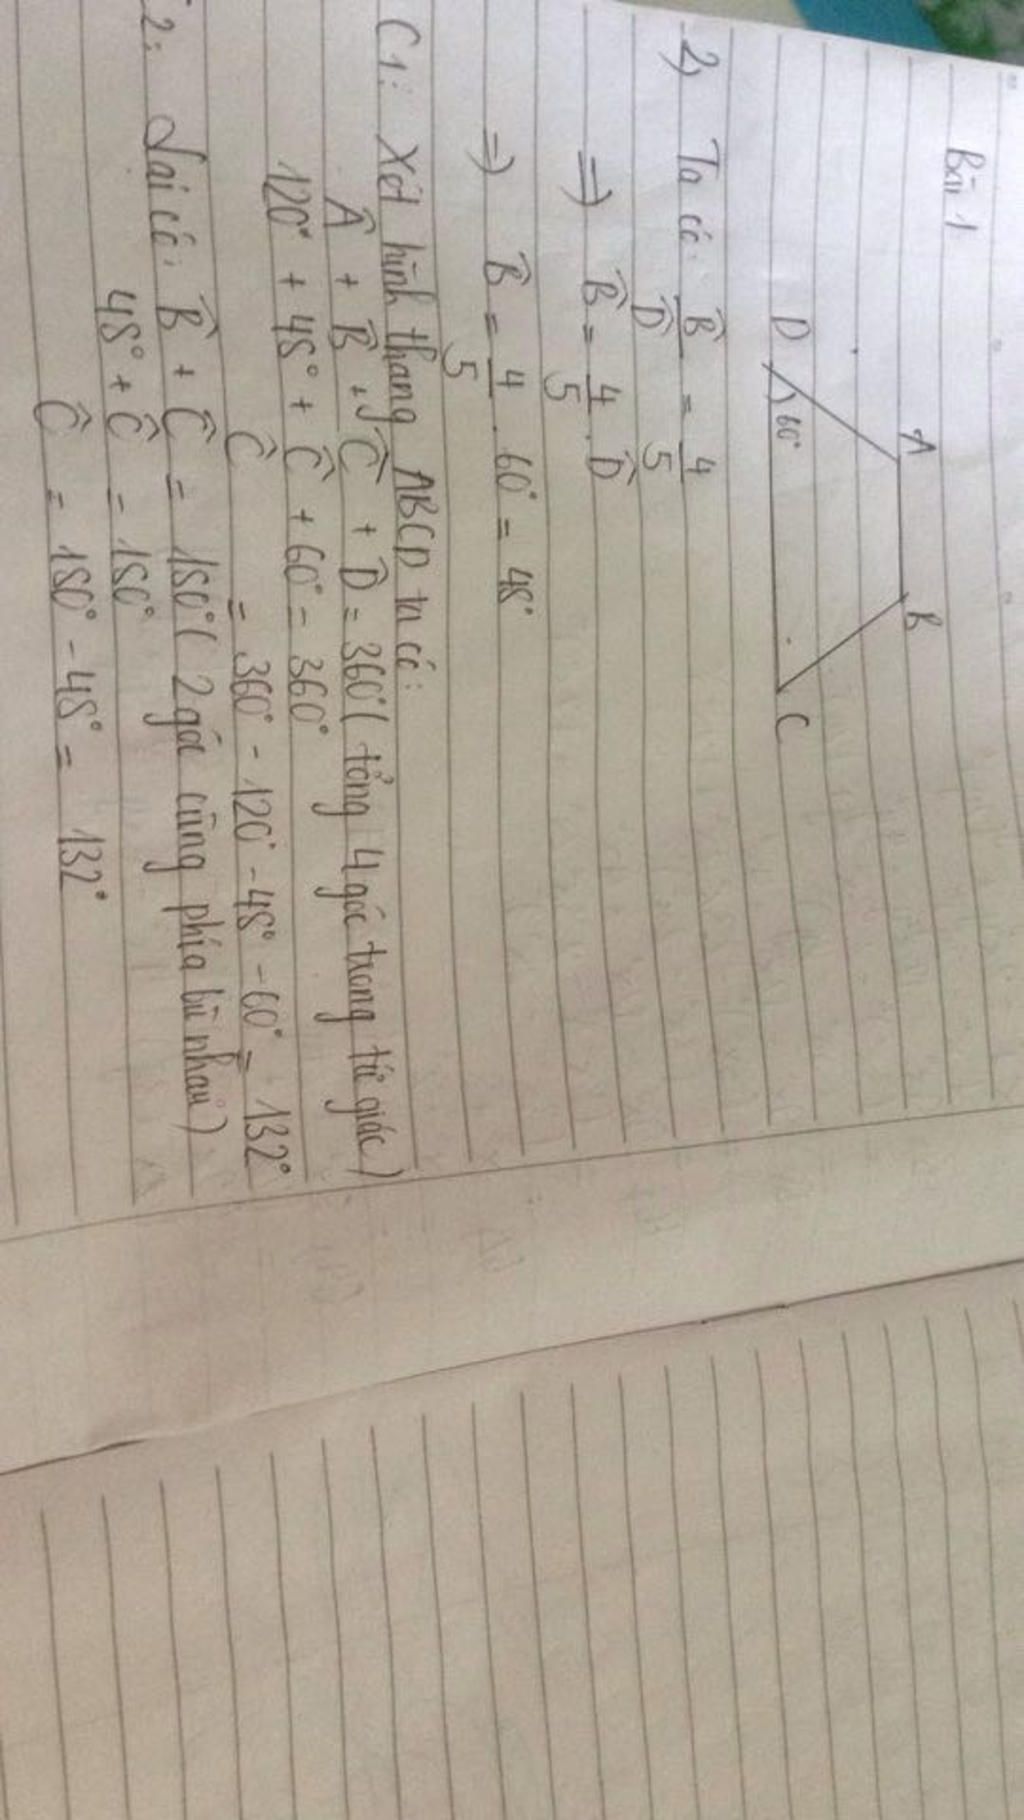 Bài 1
A
B
D
60°
C
2) Ta có: B̂/D̂ = 4/5
=> B̂ = 4/5 . D̂
=> B̂ = 4/5 . 60° = 48°
C1: Xét hình thang ABCD ta có:
Â + B̂ + Ĉ + D̂ = 360° ( tổng 4 góc trong tứ giác )
120° + 48° + Ĉ + 60° = 360°
Ĉ = 360° - 120° - 48° - 60° = 132°
2: Lại có: B̂ + Ĉ = 180° ( 2 góc cùng phía bù nhau )
48° + Ĉ = 180°
Ĉ = 180° - 48° = 132°